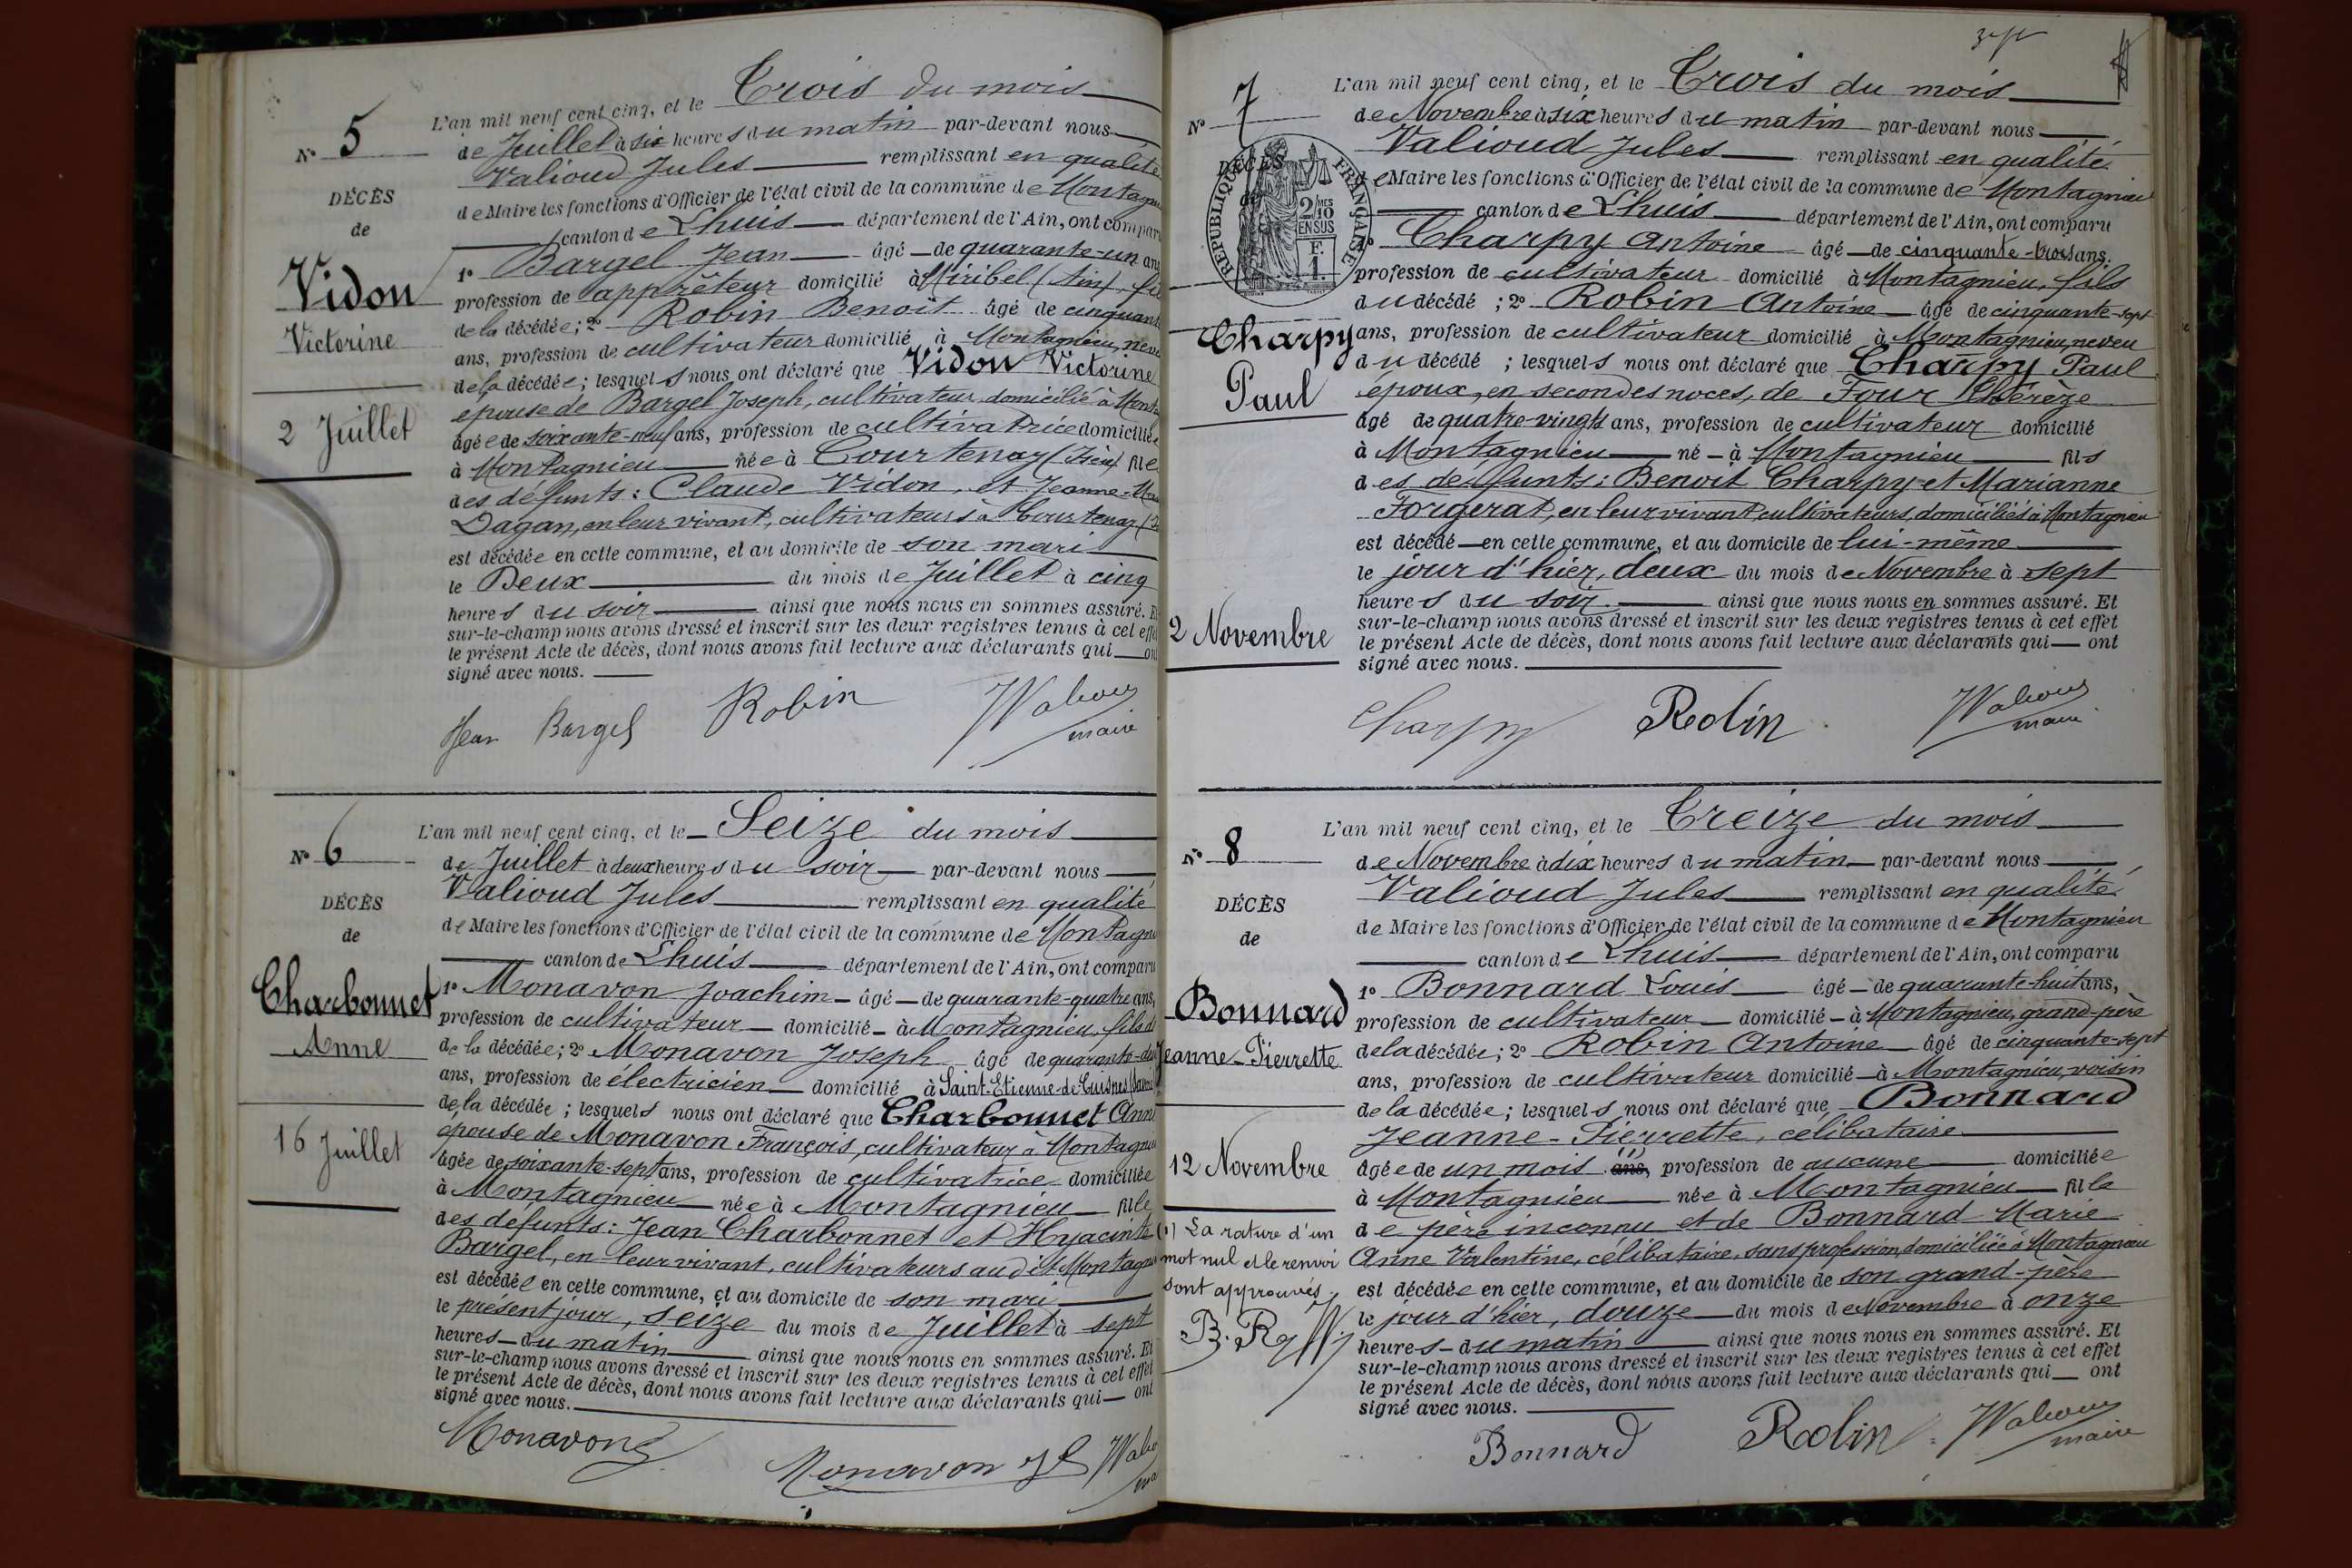 N° 5
DÉCÈS
de
Vidon
Victorine
2 Juillet
L'an mil neuf cent cinq, et le Trois du mois
de Juillet à six heures du matin par-devant nous
Valioud Jules remplissant en qualité
de Maire les fonctions d'Officier de l'état civil de la commune de Montagnieu
canton de Lhuis département de l'Ain, ont comparu
1° Bargel Jean âgé de quarante-un ans
profession de apprêteur domicilié à Miribel (Ain), fils
de la décédée; 2° Robin Benoît âgé de cinquante
ans, profession de cultivateur domicilié à Montagnieu, neveu
de la décédée; lesquels nous ont déclaré que Vidon Victorine
épouse de Bargel Joseph, cultivateur, domicilié à Mont
âgée de soixante-neuf ans, profession de cultivatrice domiciliée
à Montagnieu née à Courtenay (Isère) fille
des défunts: Claude Vidon, et Jeanne-Ma
Dagan, en leur vivant, cultivateurs à Courtenay (
est décédée en cette commune, et au domicile de son mari
le Deux du mois de Juillet à cinq
heures du soir ainsi que nous nous en sommes assuré. Et
sur-le-champ nous avons dressé et inscrit sur les deux registres tenus à cet effet
le présent Acte de décès, dont nous avons fait lecture aux déclarants qui ont
signé avec nous.
Jean Bargel Robin JValioud
maire
N° 6
DÉCÈS
de
Charbonnet
Anne
16 Juillet
L'an mil neuf cent cinq, et le Seize du mois
de Juillet à deux heures du soir par-devant nous
Valioud Jules remplissant en qualité
de Maire les fonctions d'Officier de l'état civil de la commune de Montagnieu
canton de Lhuis département de l'Ain, ont comparu
1° Monavon Joachim âgé de quarante-quatre ans,
profession de cultivateur domicilié à Montagnieu, fils de
de la décédée; 2° Monavon Joseph âgé de quarante-deux
ans, profession de électricien domicilié à Saint-Etienne-de-Cuisnes (Savoie)
de la décédée; lesquels nous ont déclaré que Charbonnet Anne
épouse de Monavon François, cultivateur à Montagnieu
âgée de soixante-sept ans, profession de cultivatrice domiciliée
à Montagnieu née à Montagnieu fille
des défunts: Jean Charbonnet et Hyacinte
Bargel, en leur vivant, cultivateurs au dit Montagnieu
est décédée en cette commune, et au domicile de son mari
le présent jour, seize du mois de Juillet à sept
heures du matin ainsi que nous nous en sommes assuré. Et
sur-le-champ nous avons dressé et inscrit sur les deux registres tenus à cet effet
le présent Acte de décès, dont nous avons fait lecture aux déclarants qui ont
signé avec nous.
Monavon Monavon JValioud
N° 7
DÉCÈS
de
RÉPUBLIQUE FRANÇAISE
2/10 MES
EN SUS
F.
1.
Charpy
Paul
2 Novembre
L'an mil neuf cent cinq, et le Trois du mois
de Novembre à six heures du matin par-devant nous
Valioud Jules remplissant en qualité
de Maire les fonctions d'Officier de l'état civil de la commune de Montagnieu
canton de Lhuis département de l'Ain, ont comparu
1° Charpy Antoine âgé de cinquante-trois ans,
profession de cultivateur domicilié à Montagnieu, fils
du décédé; 2° Robin Antoine âgé de cinquante-sept
ans, profession de cultivateur domicilié à Montagnieu, neveu
du décédé; lesquels nous ont déclaré que Charpy Paul
époux, en secondes noces, de Four Thérèze
âgé de quatre-vingts ans, profession de cultivateur domicilié
à Montagnieu né à Montagnieu fils
des défunts: Benoit Charpy et Marianne
Forgerat, en leur vivant, cultivateurs, domiciliés à Montagnieu
est décédé en cette commune, et au domicile de lui-même
le jour d'hier, deux du mois de Novembre à sept
heures du soir ainsi que nous nous en sommes assuré. Et
sur-le-champ nous avons dressé et inscrit sur les deux registres tenus à cet effet
le présent Acte de décès, dont nous avons fait lecture aux déclarants qui ont
signé avec nous.
Charpy Robin JValioud
maire
N° 8
DÉCÈS
de
Bonnard
Jeanne-Pierrette
12 Novembre
(1) La rature d'un
mot nul et le renvoi
sont approuvés.
B. R.
L'an mil neuf cent cinq, et le Treize du mois
de Novembre à dix heures du matin par-devant nous
Valioud Jules remplissant en qualité
de Maire les fonctions d'Officier de l'état civil de la commune de Montagnieu
canton de Lhuis département de l'Ain, ont comparu
1° Bonnard Louis âgé de quarante-huit ans,
profession de cultivateur domicilié à Montagnieu, grand-père
de la décédée; 2° Robin Antoine âgé de cinquante-sept
ans, profession de cultivateur domicilié à Montagnieu, voisin
de la décédée; lesquels nous ont déclaré que Bonnard
Jeanne-Pierrette, célibataire
âgée de un mois (1) ans, profession de aucune domiciliée
à Montagnieu née à Montagnieu fille
de père inconnu et de Bonnard Marie
Anne Valentine, célibataire, sans profession, domiciliée à Montagnieu
est décédée en cette commune, et au domicile de son grand-père
le jour d'hier, douze du mois de Novembre à onze
heures du matin ainsi que nous nous en sommes assuré. Et
sur-le-champ nous avons dressé et inscrit sur les deux registres tenus à cet effet
le présent Acte de décès, dont nous avons fait lecture aux déclarants qui ont
signé avec nous.
Bonnard Robin JValioud
maire